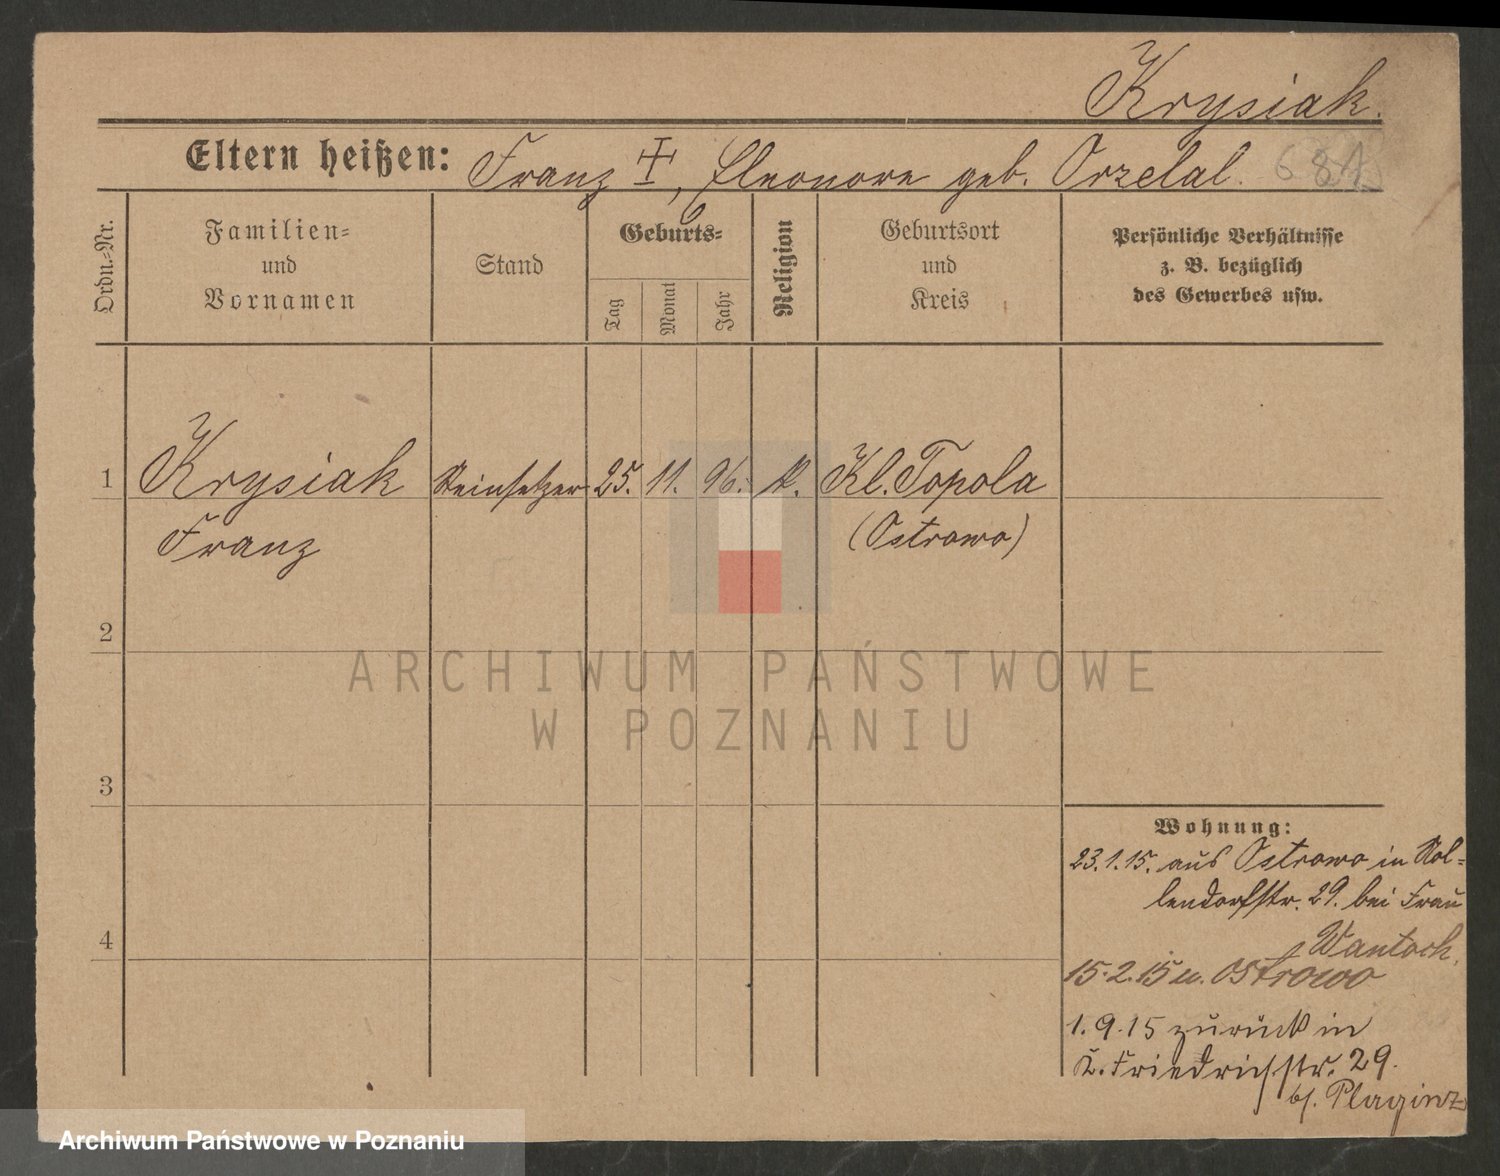 Krysiak.
Eltern heißen: Franz ‡, Eleonore geb. Orzelal.
681
Ordn.=Nr.
Familien=
und
Vornamen
Stand
Geburts=
Tag
Monat
Jahr
Religion
Geburtsort
und
Kreis
Persönliche Verhältnisse
z. B. bezüglich
des Gewerbes usw.
1 Krysiak Steinsetzer 25. 11. 96. k. Kl. Topola
Franz (Ostrowo)
2
3
4
Wohnung:
23.1.15. aus Ostrowo in Kol=
lendorfstr. 29. bei Frau
Wantoch.
15.2.15 n. Ostrowo
1.9.15 zurück in
K. Friedrichstr. 29.
bf.
ARCHIWUM PAŃSTWOWE
W POZNANIU
Archiwum Państwowe w Poznaniu